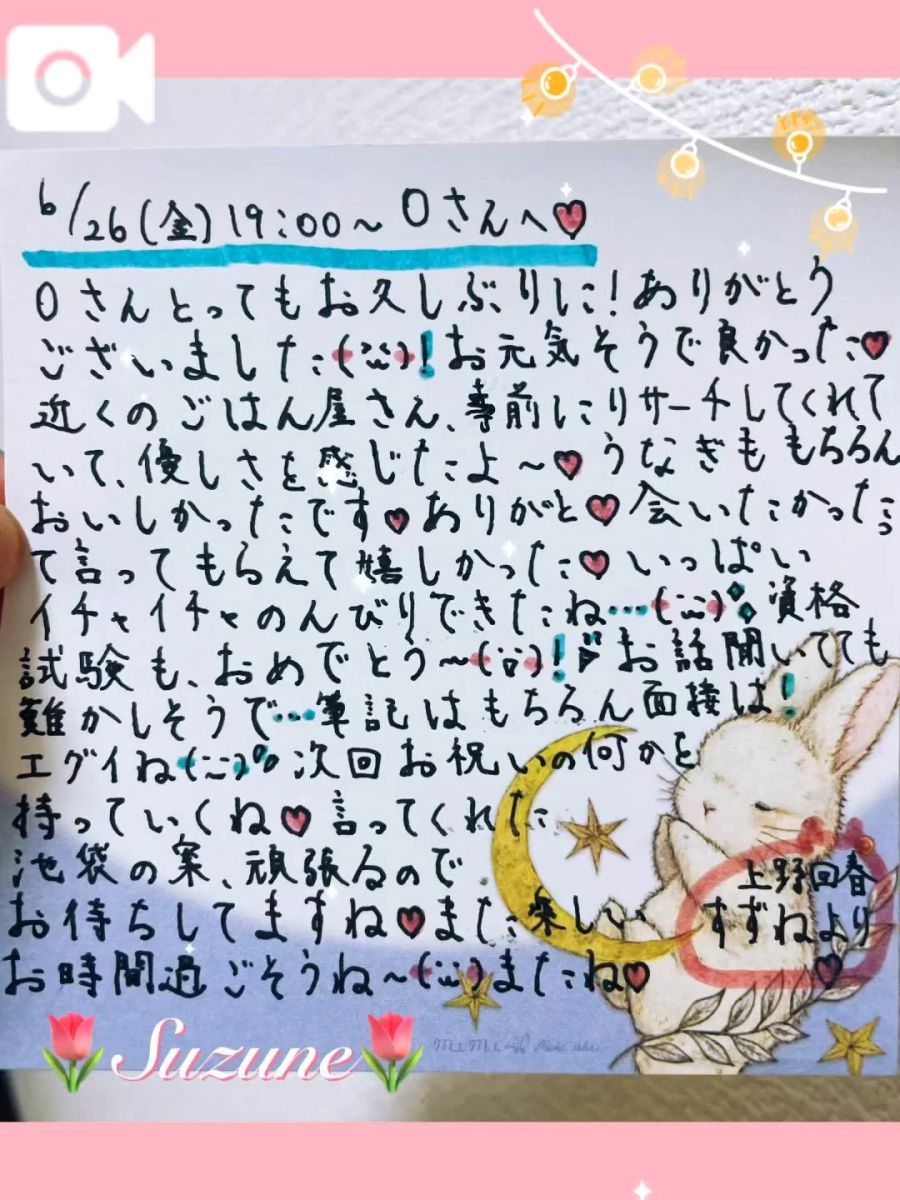 6/26(金)19:00〜Oさんへ♥
Oさんとってもお久しぶりに!ありがとう
ございました(¨̮)!お元気そうで良かった♥
近くのごはん屋さん、事前にリサーチしてくれて
いて、優しさを感じたよ〜♥うなぎももちろん
おいしかったです♥ありがと♥会いたかったっ
て言ってもらえて嬉しかった♥いっぱい
イチャイチャのんびりできたね…(¨̮)資格
試験も、おめでとう〜(¨̮)!お話聞いてても
難かしそうで…筆記はもちろん面接は!
エグイね 次回お祝いの何かを
持っていくね♥言ってくれた
池袋の案、頑張るので
お待ちしてますね♥また楽しい
お時間過ごそうね〜(¨̮)またね♥
上野回春
すずねより
♥
Suzune